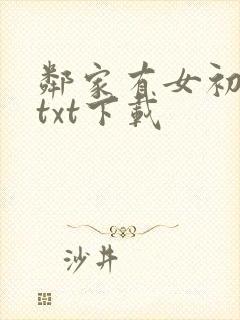 鄰家有女初
txt下載
沙井